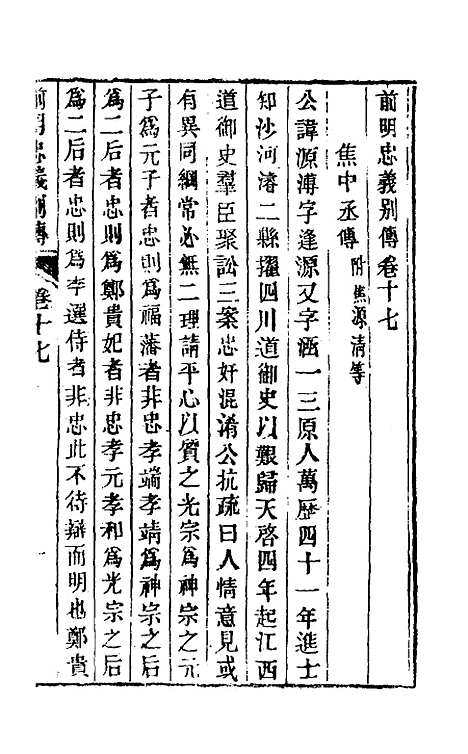 前明忠義别傳卷十七
焦中丞傳附焦源清等
公諱源溥字逢源又字涵一三原人萬歷四十一年進士
知沙河濬二縣擢四川道御史以艱歸天啓四年起江西
道御史羣臣聚訟三案忠奸混淆公抗疏曰人情意見或
有異同綱常必無二理請平心以質之光宗爲神宗之元
子爲元子者忠則爲福藩者非忠孝端孝靖爲神宗之后
爲二后者忠則爲鄭貴妃者非忠孝元孝和爲光宗之后
爲二后者忠則爲李選侍者非忠此不待辯而明也鄭貴
前明忠義别傳 卷十七 一